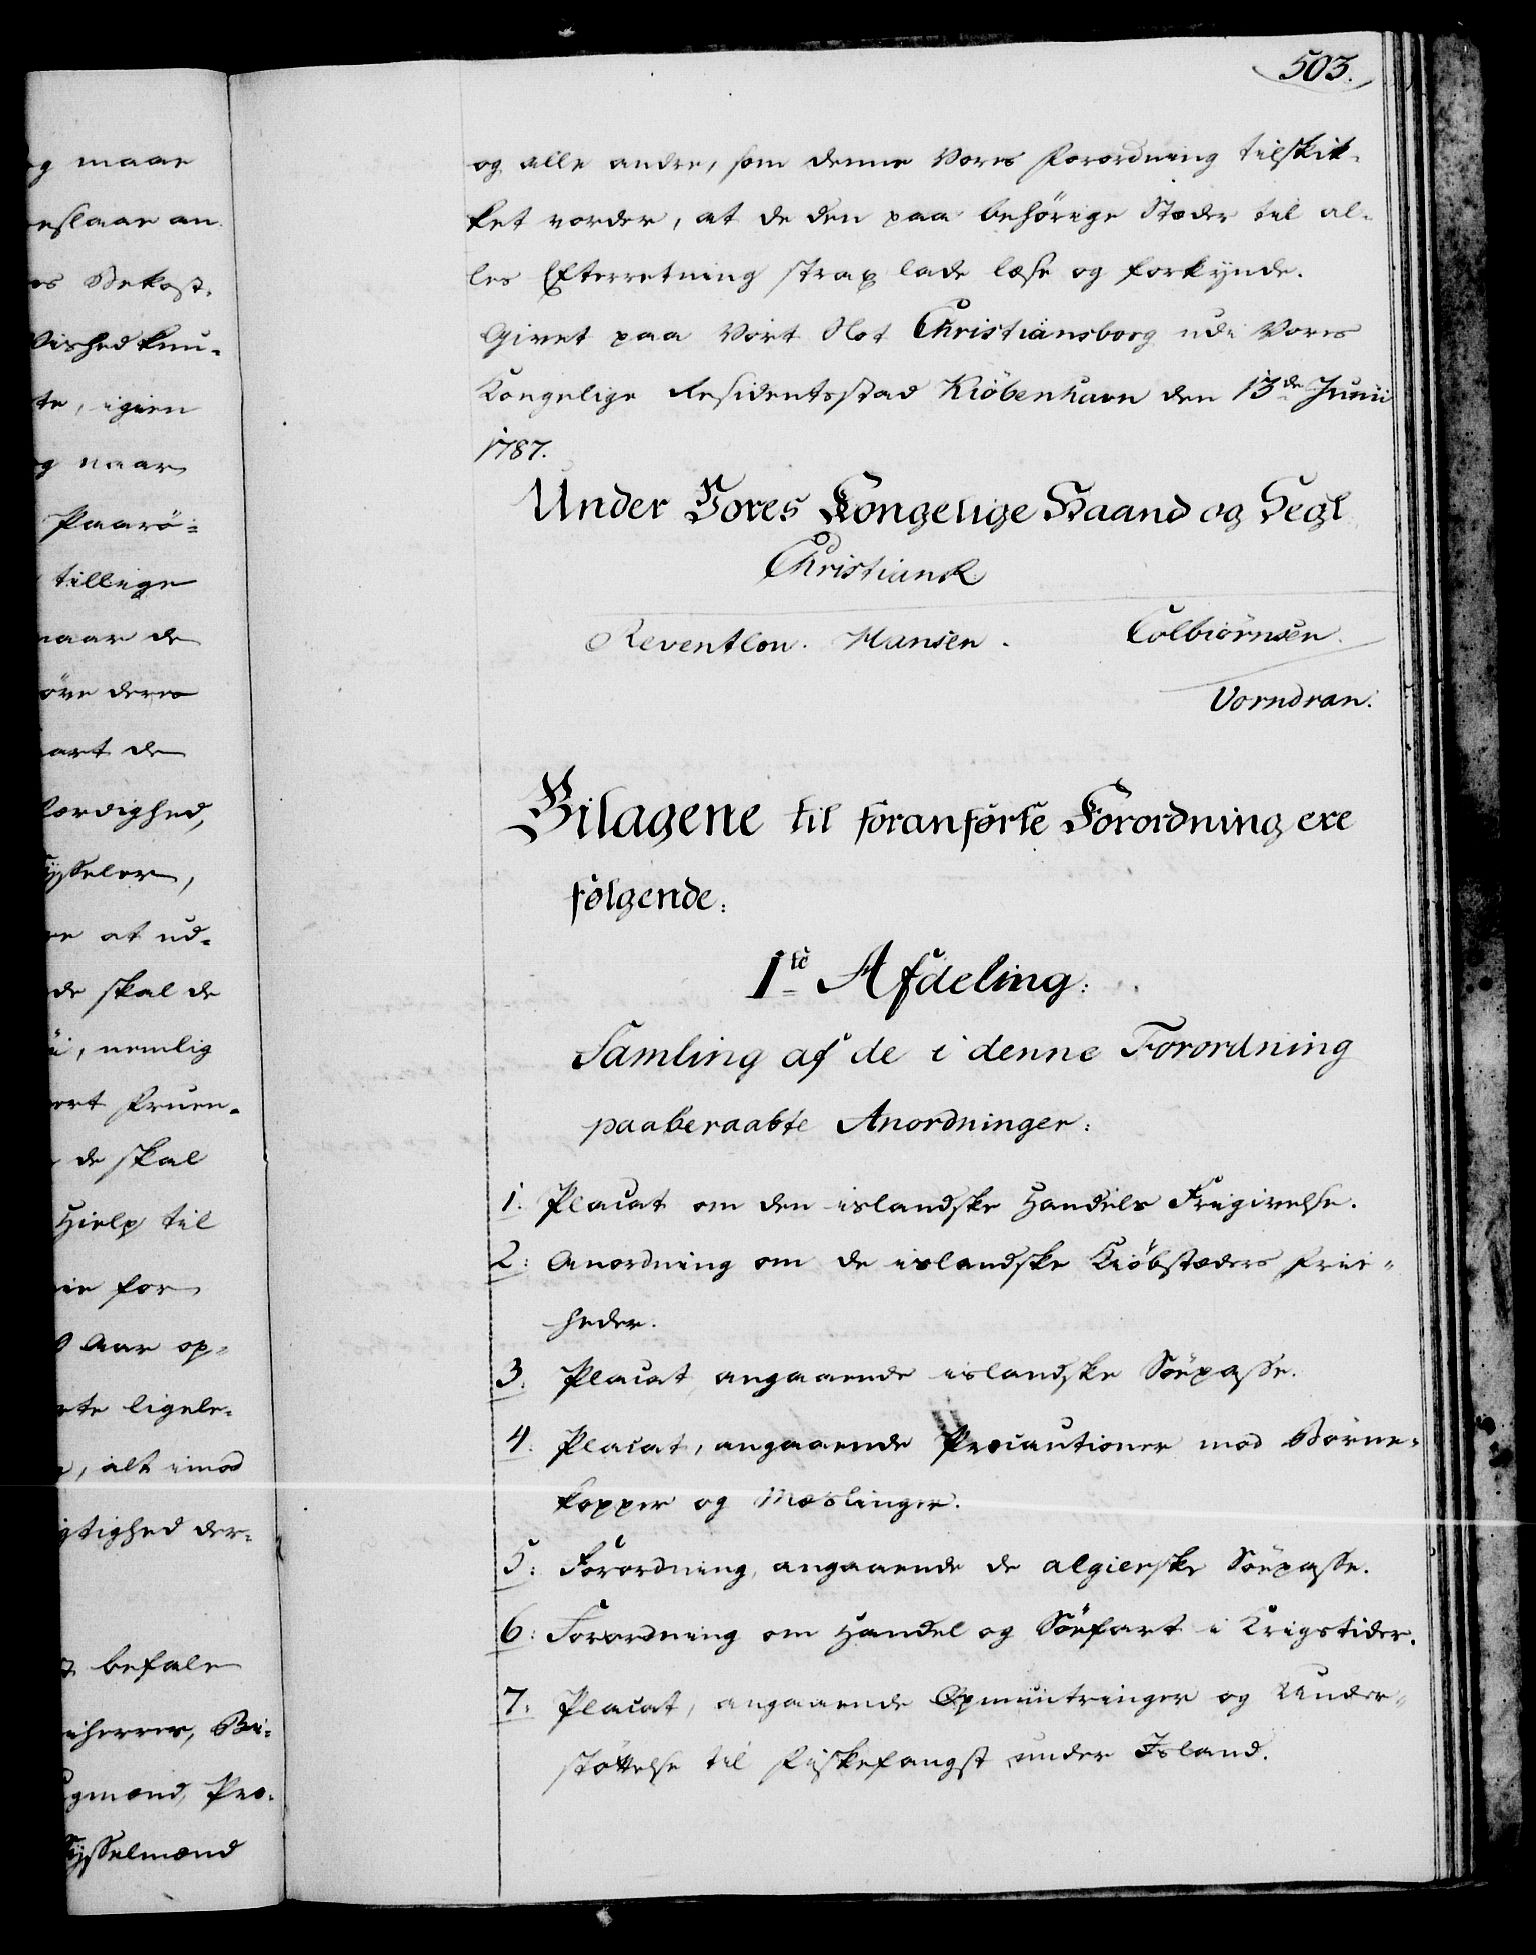 503.
og maae
eslaae an
es Bekost-
Vished kun-
te, igien
og naar
Paarö-
tillige
naar de
öve deres
art de
færdighed,
ysseler,
re at ud-
de skal de
i, nemlig
ort Pruen-
de skal
Hielp til
ie for
Aar op-
te ligele-
, alt imod
gtighed der-
befale
iherrer, Be-
gmænd, Pro-
Sysselmænd
og alle andre, som denne Vores Forordning tilskik-
ket vorder, at de den paa behörige Stæder til al-
les Efterretning strax lade læse og forkynde.
Givet paa Vort Slot Christiansborg udi Vores
Kongelige Residentsstad Kiöbenhavn den 13de Junii
1787.
Under Vores Kongelige Haand og Segl
Christian R
Reventlow. Hansen. Colbiörnsen.
Vorndran.
Bilagene til foranførte Forordning ere
følgende:
1te Afdeling:
Samling af de i denne Forordning
paaberaabte Anordninger:
1. Placat om den islandske Handels Frigivelse.
2: Anordning om de islandske Kiöbstæders Frie-
heder.
3. Placat, angaaende islandske Söepasse.
4. Placat, angaaende Præcautioner mod Börne-
kopper og Mæslinger.
5: Forordning, angaaende de algierske Söepasse.
6: Forordning om Handel og Söefart i Krigstider.
7: Placat, angaaende Opmuntringer og Under-
støttelse til Fiskefangst under Island.